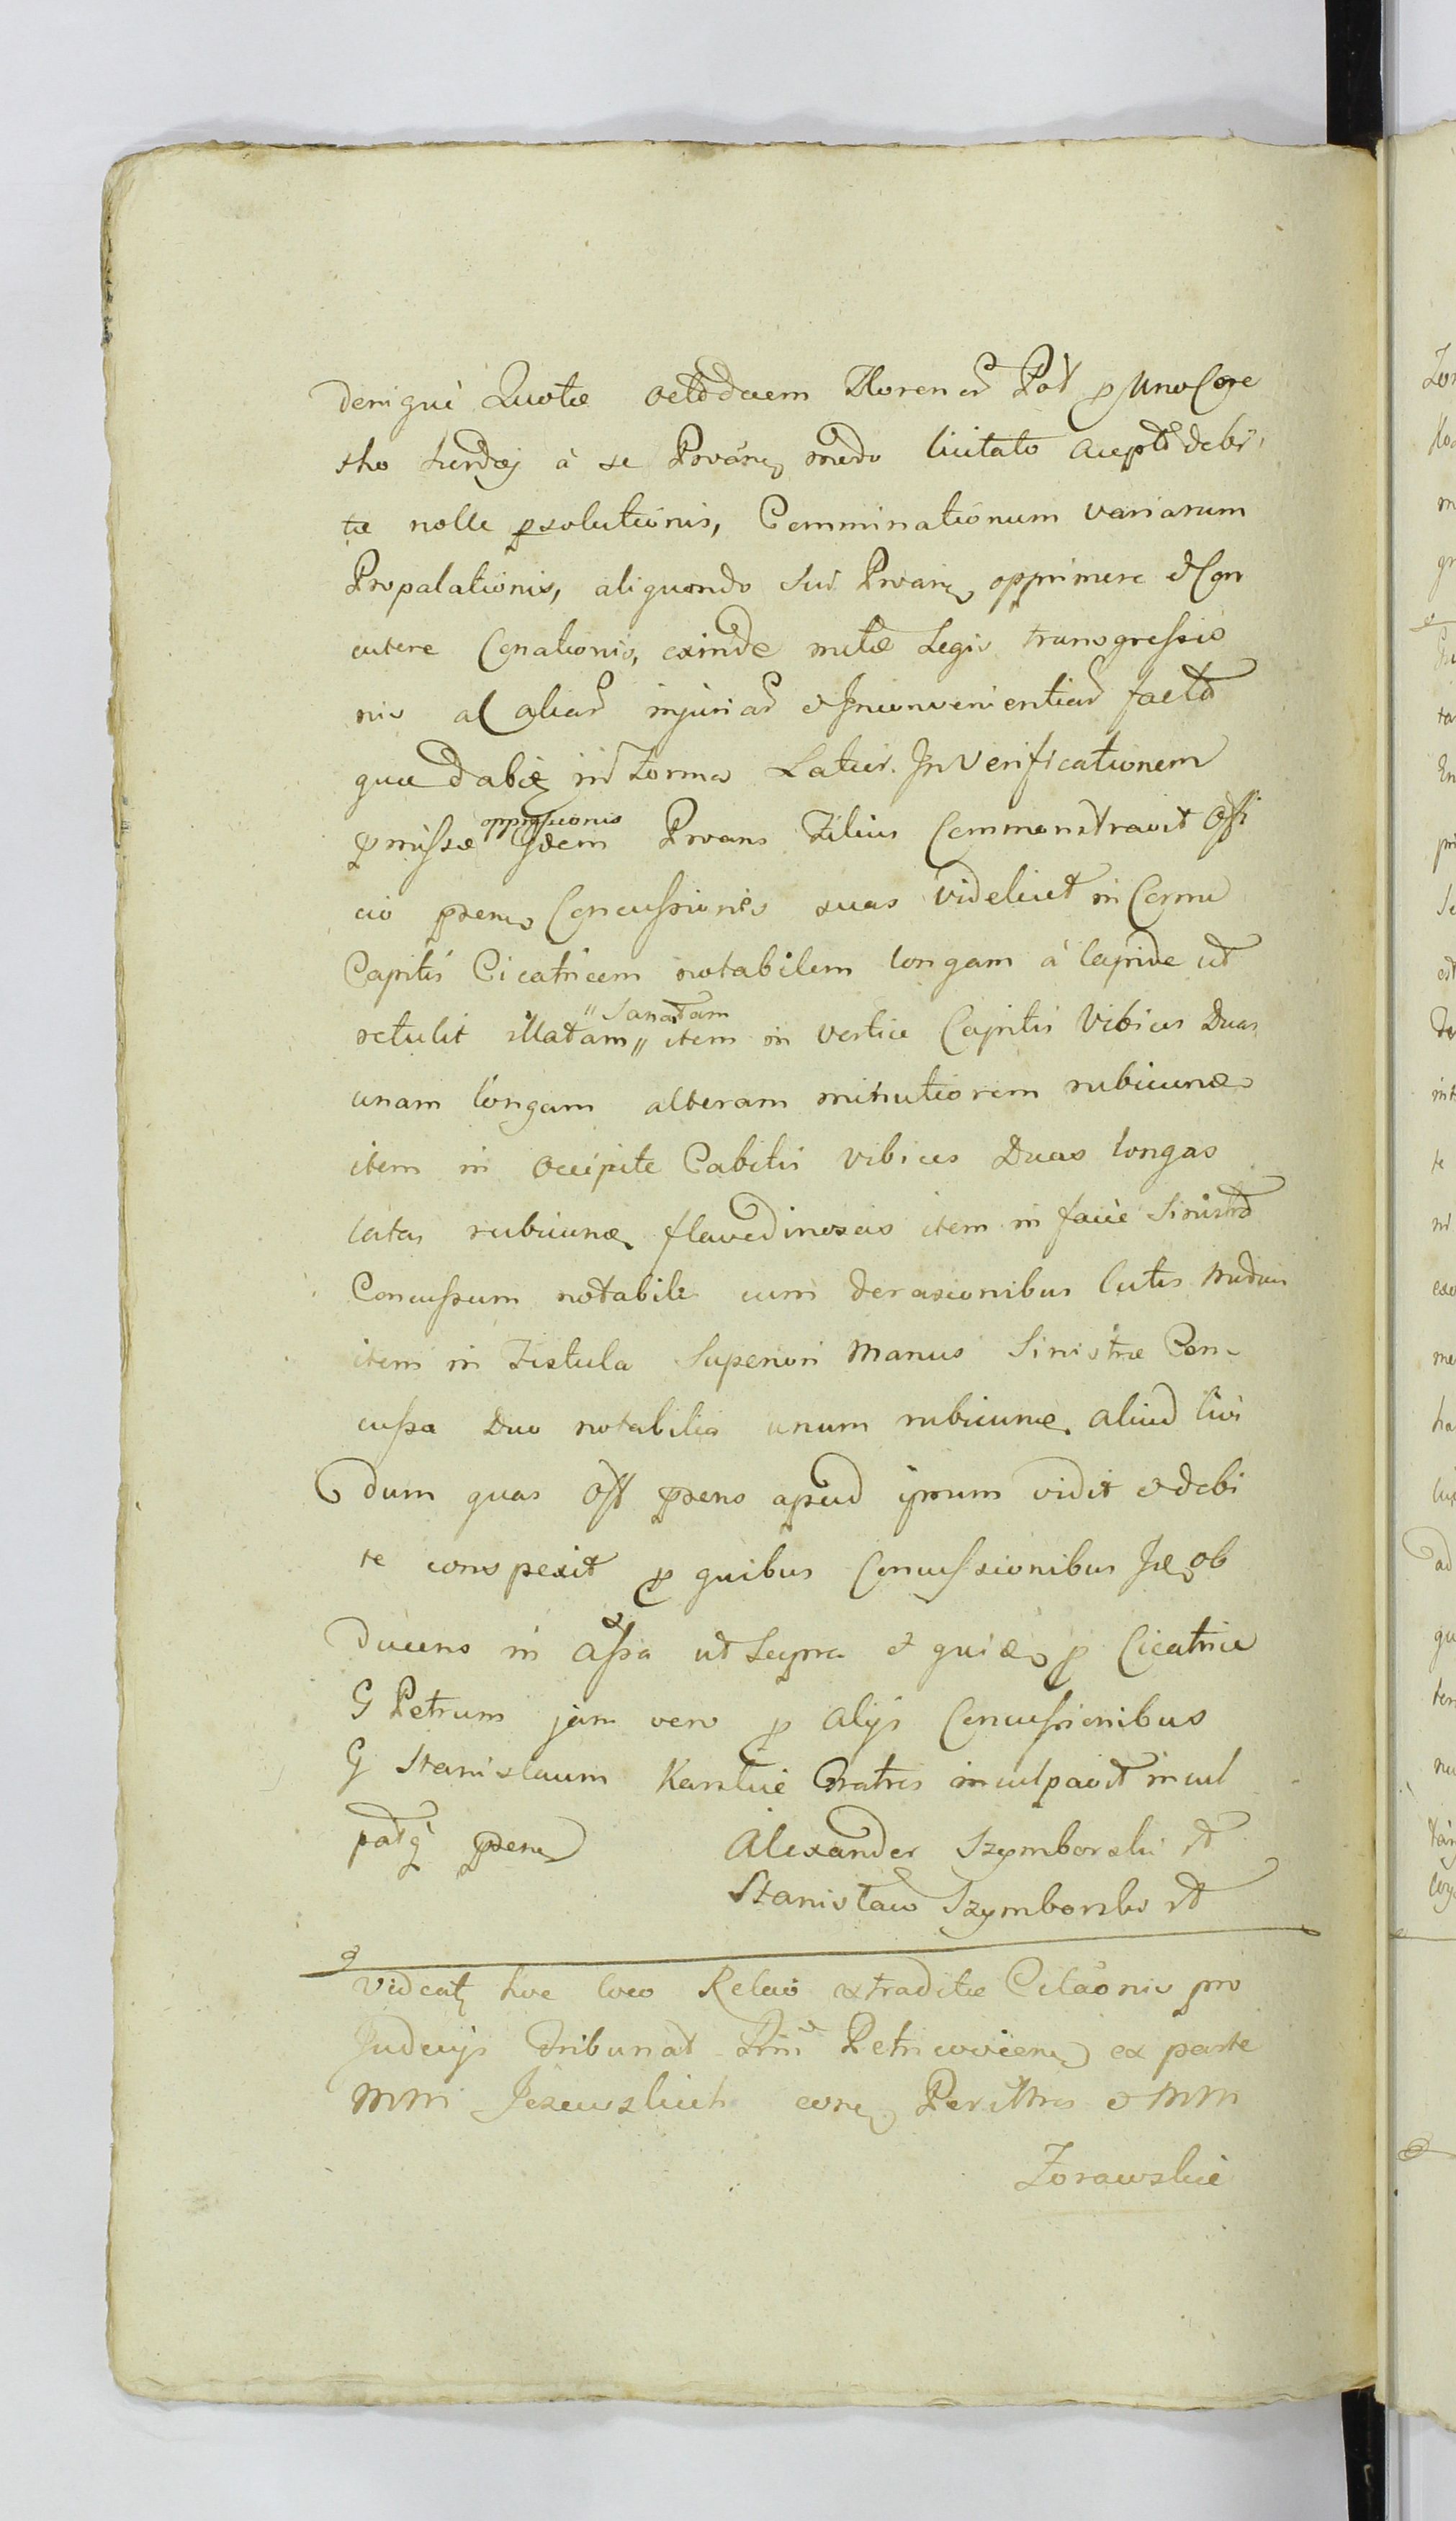 denique Quotæ octodecem Florenor Pol p uno Core
sho à se Provan modo licitato accepto debi
tæ nolle psolutionis, Comminationum variarum
Propalationis, aliquando sui Provan opprimere et Con
cutere Conationis, exinde metæ Legis transgressio
nis al aliar injuriar et Inconvenientiar facto
que dabit in Forma Latius. In Verificationem
pmissæ oppressionis idem Provans Filius Commonstravit Offi
cio psenti Concussiones suas videlicet in Cornu
Capitis Cicatricem notabilem longam à lapide ut
retulit illatam " Sanatam " item in vertice Capitis Vibices Duas
unam longam alteram minutiorem rubicunæ
item in occipite Cabitis vibices Duas longas
latas rubicunæ flavedinosas item in facie Sinistra
Concussum notabile cum derasionibus Cutis
item in Fistula Superiori Manus Sinistræ Con-
cussa Duo notabilia unum rubicunæ aliud livi
dum quas Off psens apud ipsum vidit et debi
te conspexit p quibus Concussionibus ob
ducens in assa ut Supra et p Cicatrice
G Petrum jam vero p alijs Concussionibus
G Stanislaum Karskie Fratres inculpavit incul
patq psen Alexander Szymborski st
Stanisław Szymborski st
Videat hoc loco Relaõ extraditæ Citaõnis pro
Judicijs Tribunal Petricovien ex parte
MM Jezewskich con et MM
Zorawskie